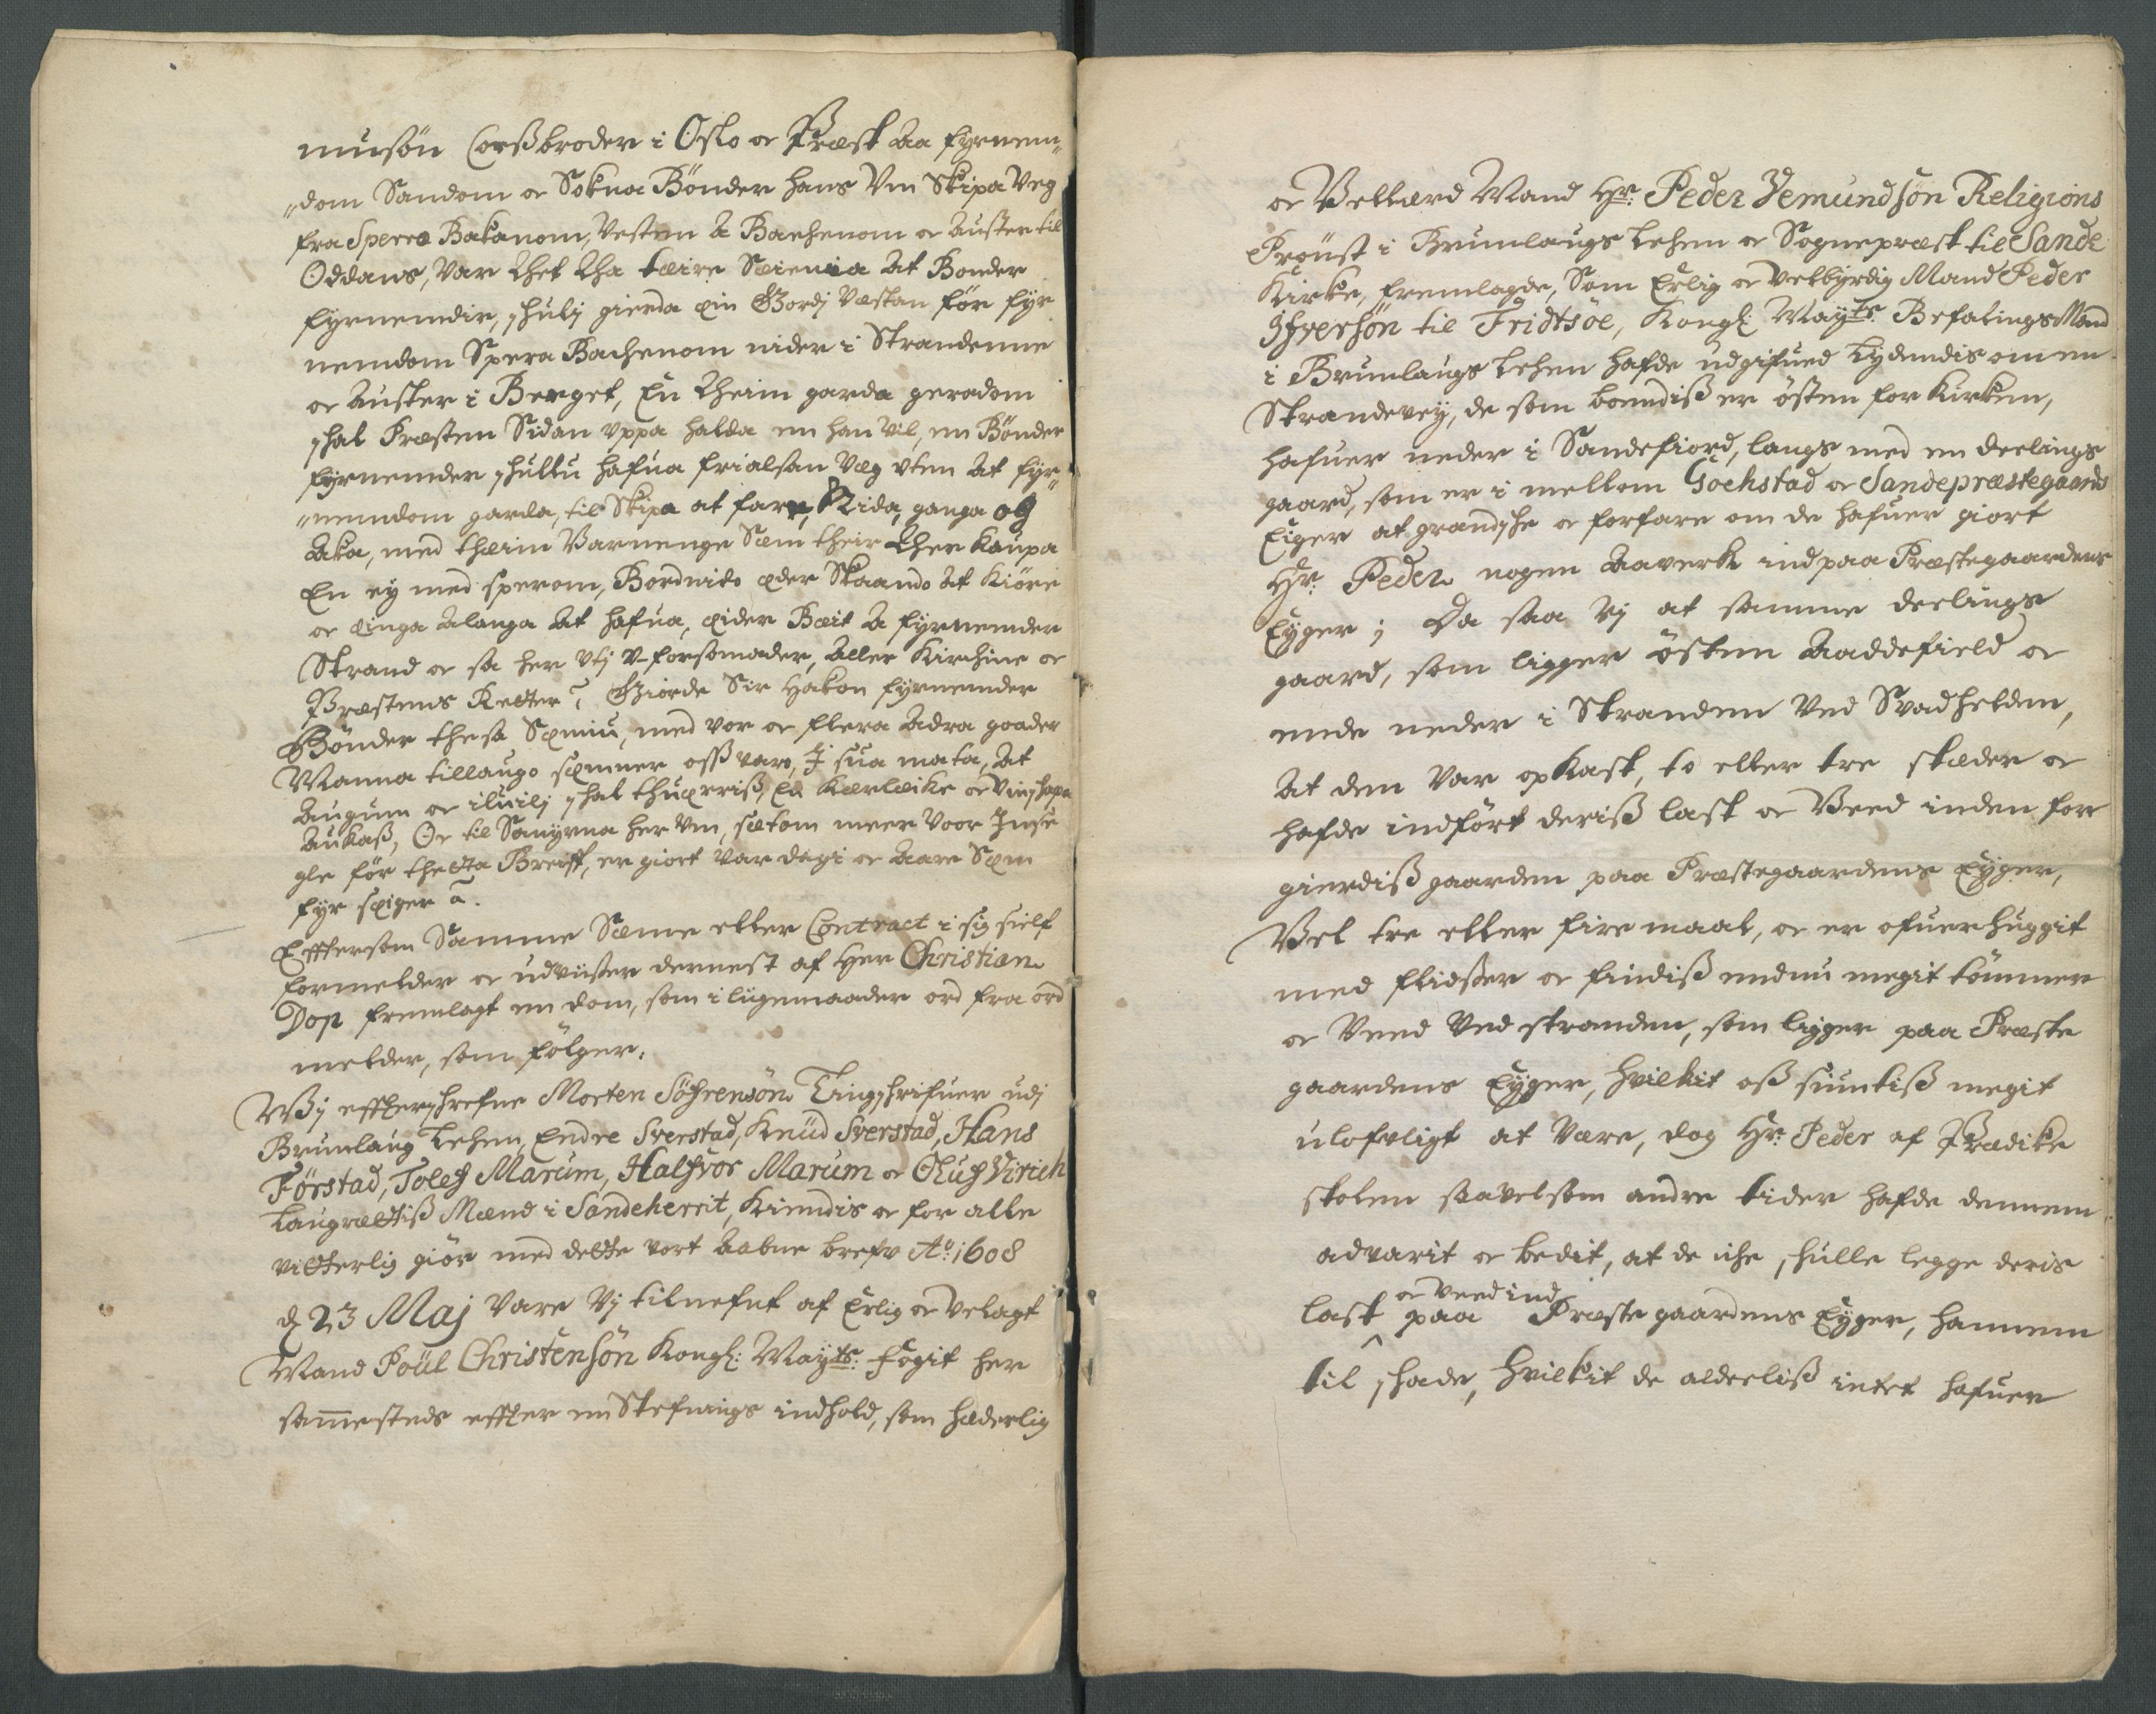 musøn Corßbroder i Oslo oc Præst Aa fyrnem„
„dom Sandom oc Sokna Bønder hans Vm Skipa Veg
fra Sperra Bakanom, Vesten A Bachenom oc Auster til
Oddans, Var thet tha teire Sæiemia At Bonder
fyrnemdir, schulj gierda ein Gordj Væstan før fyr
nemdom Spera Bachenom nider i Strandenne
oc Auster i Berget, En theim garda geradom
schal Præsten Sidan vppa halda em han vil, en Bønder
fyrnemder schullu hafua frialsan Veg vten At fyr„
„nemdom garda, til Skipa at fara, Rida, ganga og
Aka, med theim Varnenge Sæm their ther kaupa
En ey med sperom, Bordvido eder Skaando At Kiøre
oc einga Alanga At hafua, eider Beit A fyrnemder
Strand oc sa her vtj v-forsomader, Aller Kirchine oc
Præstens Retter, Giorde Sir Hakon fyrnemder
Bønder thesa Sæmiu, med vor oc flera Adra goader
Manna tillaugo sæmmer oss vare, I sua mata, At
Augum oc iluilj schal thuerriß, En kærleike oc Vinschapa
Aukaß, Oc til Sanyrna her vm, setom meer voor Inse
gle før thetta Breiff, er giort var degi oc Aare Sæm
fyr seiger ã.
Effttersom Samme Sæme eller Contract i sig sielf
formelder oc udviiser dernest af Her Christian
Dop fremlagt en dom, som i ligemaader ord fra ord
melder, som følger.
Wßj efftterschrefne Morten Søfrensøn Tingschrifuer udj
Brunlaug Lehen, Endre Sverstad, Knud Sverstad, Hans
Førstad, Tolef Marum, Halfvor Marum oc Oluf Virich
Laugrettiß Mænd i Sandeherrit, Kiendis oc for alle
vitterlig giør med dette vort Aabne brefv Aº. 1608
d 23 Maj Vare Vj tilnefnt af Erlig oc Velagt
Mand Poul Christensøn Kongl: Mayts: Fogit her
sammesteds effter en Stefnings indhold, som hæderlig
oc Vellærd Mand Hr: Peder Jemundsøn Religions
Proust i Brunlaugs Lehen oc Sognepræst til Sande
Kirke, fremlagde, Som Erlig oc Velbyrdig Mand Peder
Ifversøn til Fridtsøe, Kongl: Mayts: Befalings Mand
i Brunlaugs Lehen hafde udgifued Lydendis om en
Strandevey, de som boendiß er østen for Kirken,
hafuer neder i Sandefiord, langs med en deelings
gaard, som er i mellem Gochstad oc Sandepræstegaards
Eiger at grandsche oc forfare om de hafuer giort
Hr: Peder nogen Aaverk ind paa Præstegaardens
Eyger; Da saa Vj at samme deelings
gaard, som ligger østen Aaddefield oc
ende neder i Stranden Ved Svadhelden,
At den Var opkast, to eller tre stæder oc
hafde indført deriß last oc Veed inden for
gierdiß gaarden paa Præstegaardens Eyger,
Vel tre eller fire maal, oc er ofuerhuggit
med flidser oc findiß endnu megit tømmer
oc Veed Ved stranden, som ligger paa Præste
gaardens Eyger, hvilkit oß siuntiß megit
ulofvligt at være, dog Hr: Peder af Prædike
stolen saavelsom andre tider hafde dennem
advarit oc bedit, at de iche schulle legge deris
last oc Veed ind paa Præstegaardens Eyger, hannem
til schade, hvilkit de alderliß intet hafuer